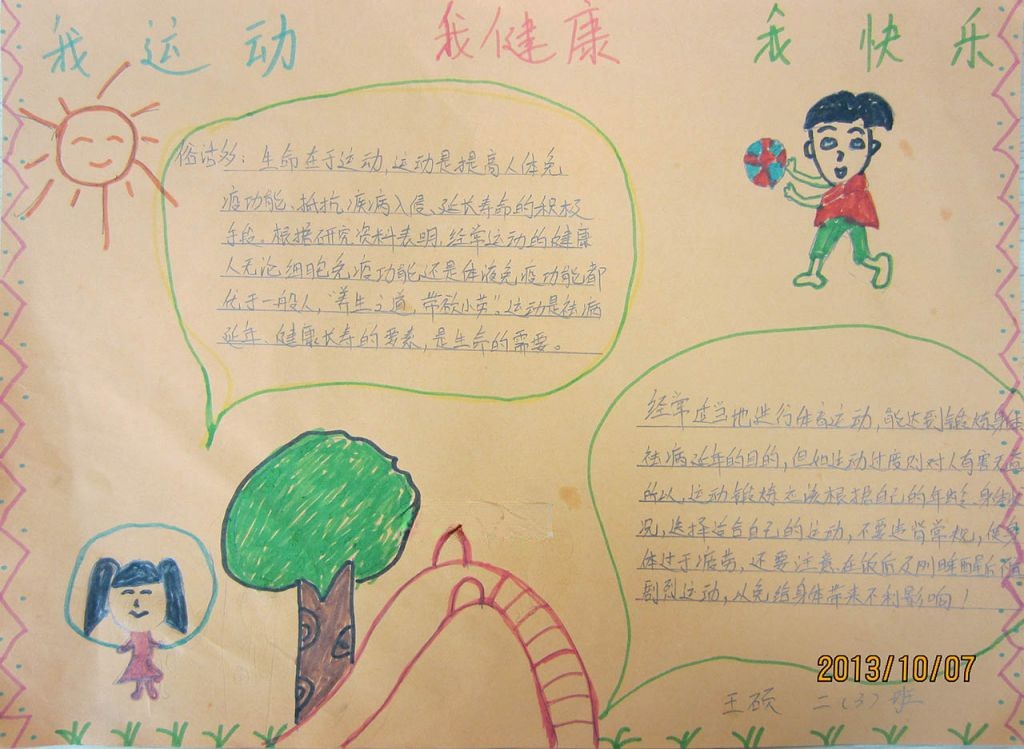 我运动 我健康 我快乐
俗话多：生命在于运动，运动是提高人体免
疫功能、抵抗疾病入侵、延长寿命的积极
手段。根据研究资料表明，经常运动的健康
人无论细胞免疫功能还是体液免疫功能都
优于一般人，“养生之道，带秘小劳”。运动是祛病
延年、健康长寿的要素，是生命的需要。
经常适当地进行体育运动，能达到锻炼身体
祛病延年的目的，但如运动过度则对人有害无益
所以，运动锻炼应该根据自己的年龄、身体
况，选择适合自己的运动，不要违背常规，使身
体过于疲劳，还要注意在饭后及刚睡醒后不
剧烈运动，以免给身体带来不利影响！
2013/10/07
王硕 二（3）班